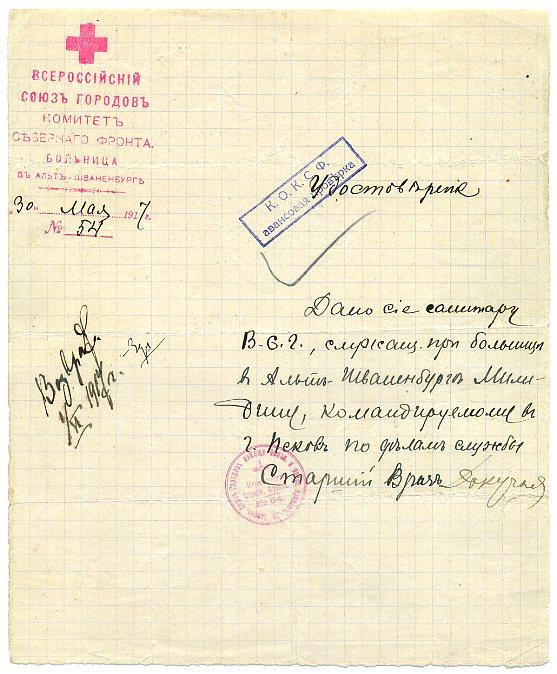 ВСЕРОССІЙСКІЙ
СОЮЗЪ ГОРОДОВЪ
КОМИТЕТЪ
СѢВЕРНАГО ФРОНТА.
БОЛЬНИЦА
ВЪ АЛЬТЪ-ШВАНЕНБУРГѢ
"30" Мая 1917 г.
№ 54
К. О. К. С. Ф.
авансовая
Дано сіе санитару
В.С.Г., служащ. при больницѣ
в Альтъ-Шваненбургѣ Мили-
дину, командируемому в
г. Псковъ по дѣламъ службы
Старшій Врачъ
1917 г.